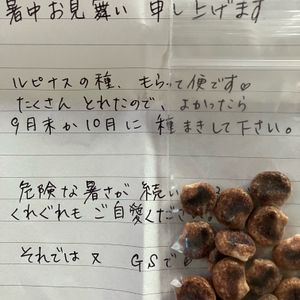 暑中お見舞い 申し上げます
ルピナスの種、もらって便です♡
たくさん とれたので、よかったら
9月末か10月に 種まきして下さい。
危険な暑さが 続い
くれぐれも ご自愛くださ
それでは又 GSで